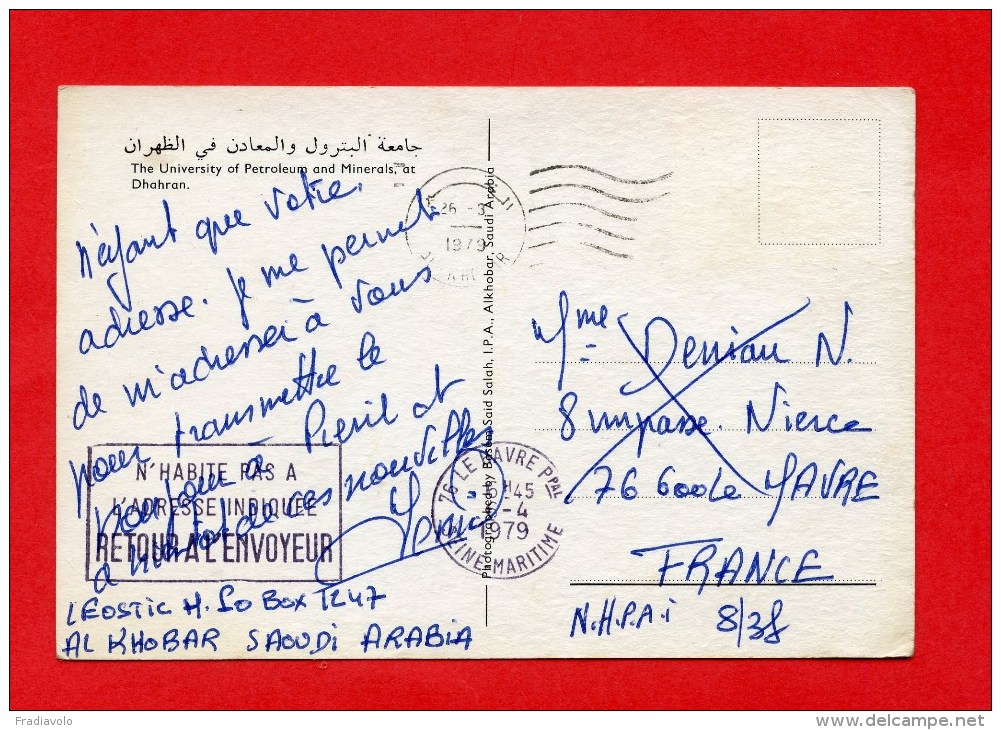 جامعة البترول والمعادن في الظهران
The University of Petroleum and Minerals, at
Dhahran.
n'ayant que votre
adresse. Je me permets
de m'adresser à vous
pour transmettre le
bonjour à
nouvelles
N'HABITE PAS A
L'ADRESSE INDIQUEE
RETOUR A L'ENVOYEUR
LEOSTIC H. PO BOX 1247
AL KHOBAR SAOUDI ARABIA
26 -3
1979
Photographed by Basem Said Salah, I.P.A., Alkhobar, Saudi Arabia
76 LE HAVRE PPAL
-4
1979
SEINE MARITIME
Mme Deniau N.
8 impasse. Nierce
76600 Le HAVRE
FRANCE
N.H.P.A.i 8/38
Fradiavolo
delcampe.net